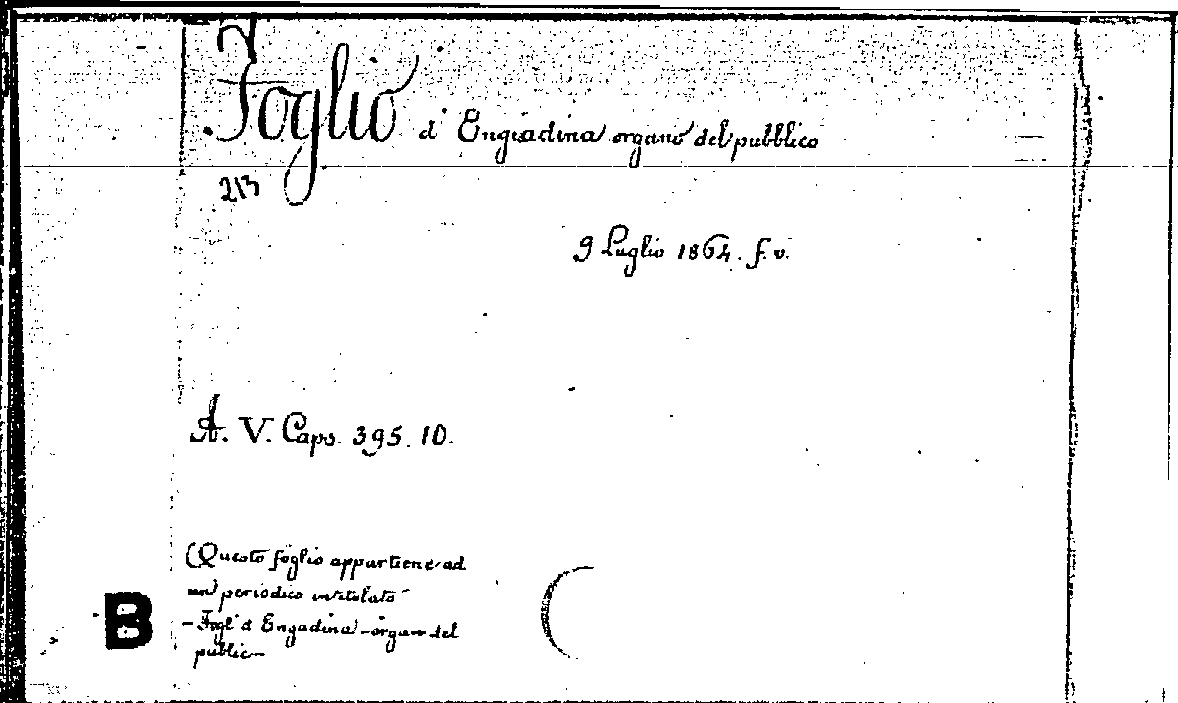 Foglio d'Engiadina organo del pubblico
213
9 Luglio 1864. f. v.
A. V. Caps. 395. 10.
(Questo foglio appartiene ad
un periodico intitolato
- Fogl d'Engadina - organ del
public -
B